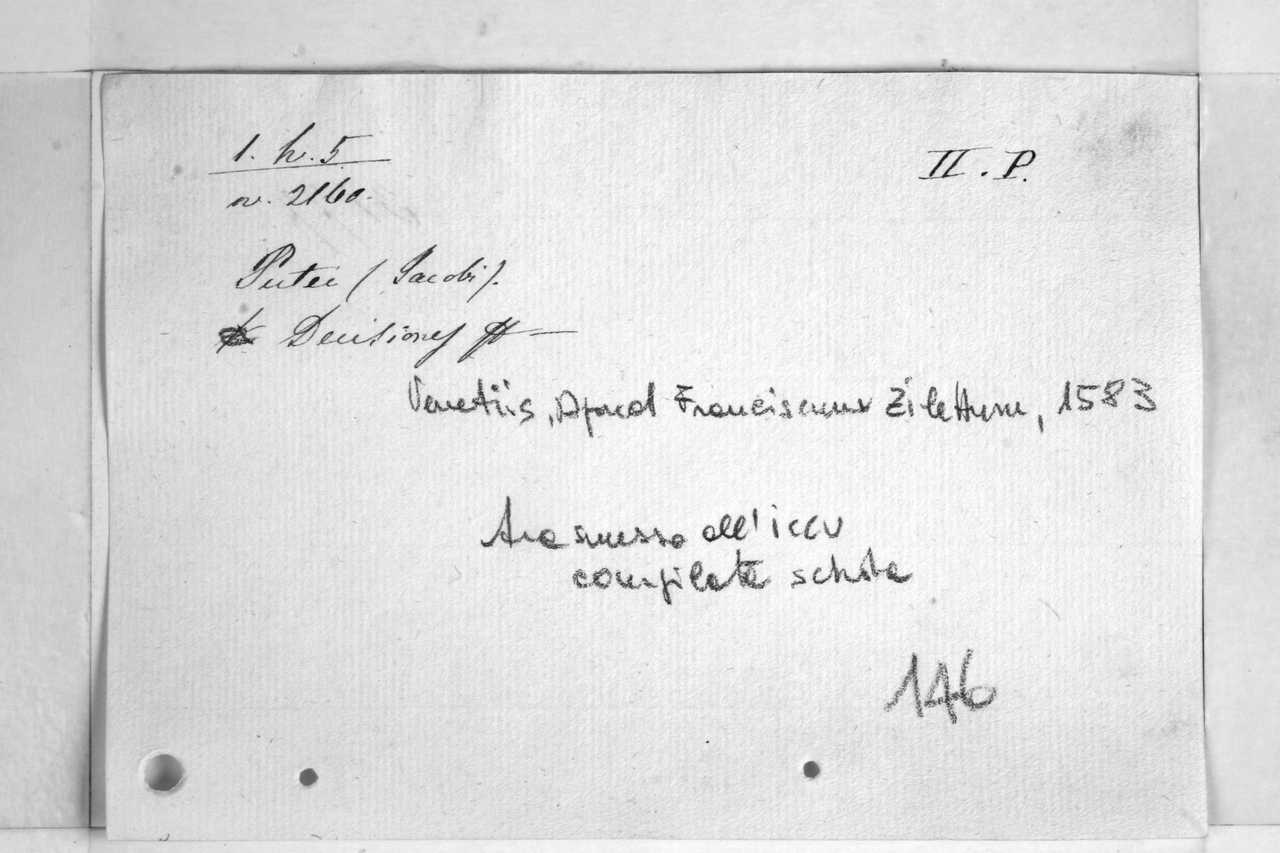 1. h. 5
II. P.
n. 2160.
Putei (Jacobi).
Decisiones
Venetiis, Apud Franciscum Zilettum, 1583
Trasmesso all'iccu
compilata scheda
146